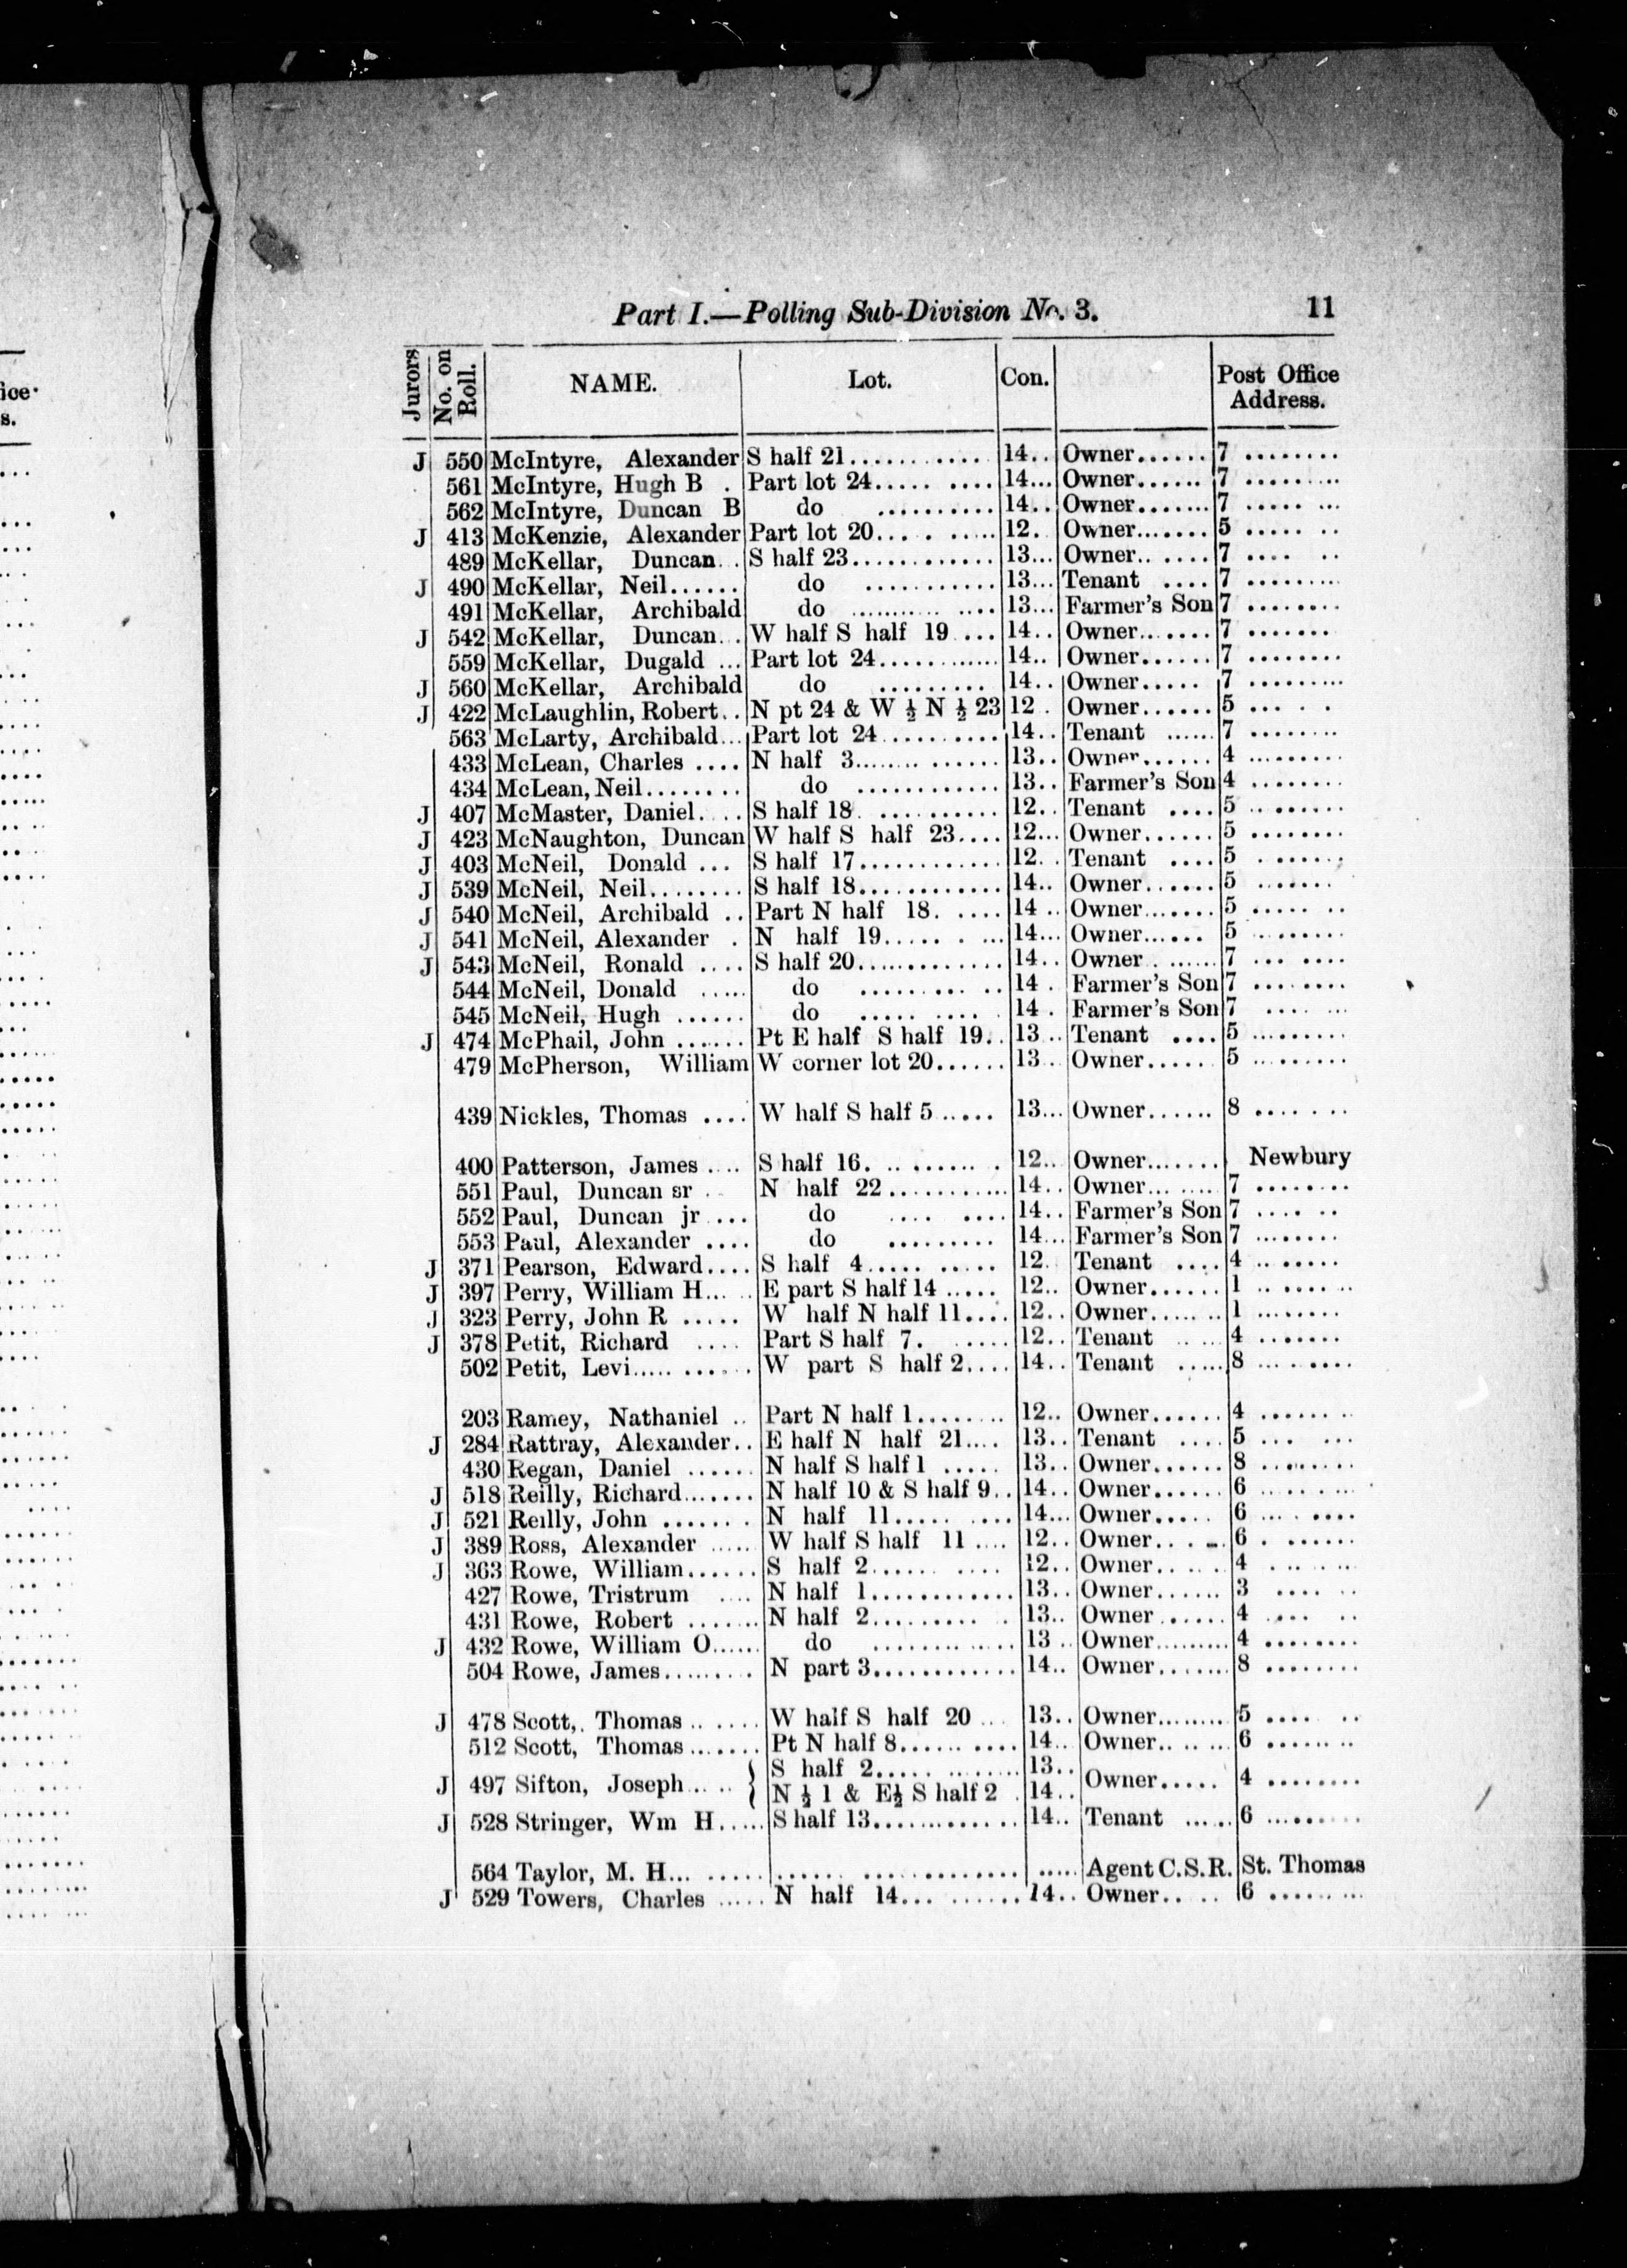 ice
s.
Part I.—Polling Sub-Division No. 3. 11
Jurors No. on Roll. NAME. Lot. Con. Post Office Address.
J 550 McIntyre, Alexander S half 21............ 14.. Owner...... 7 ........
561 McIntyre, Hugh B . Part lot 24..... ..... 14... Owner...... 7 .........
562 McIntyre, Duncan B do .......... 14.. Owner....... 7 ..... ...
J 413 McKenzie, Alexander Part lot 20.... . ..... 12. Owner....... 5 ..... ..
489 McKellar, Duncan. . S half 23............ 13... Owner.. ..... 7 .... ..
J 490 McKellar, Neil...... do ........... 13... Tenant .... 7 .........
491 McKellar, Archibald do .......... .... 13... Farmer's Son 7 ........
J 542 McKellar, Duncan. . W half S half 19 ... 14.. Owner....... 7 .......
559 McKellar, Dugald ... Part lot 24............ 14.. Owner...... 7 ........
J 560 McKellar, Archibald do ......... 14.. Owner..... 7 .........
J 422 McLaughlin, Robert.. N pt 24 & W ½ N ½ 23 12 . Owner...... 5 ... . .
563 McLarty, Archibald... Part lot 24.......... 14.. Tenant ...... 7 ........
433 McLean, Charles .... N half 3....... ...... 13.. Owner...... 4 .........
434 McLean, Neil........ do ............ 13.. Farmer's Son 4 ........
J 407 McMaster, Daniel. . . S half 18. .......... 12. . Tenant .... 5 .. ......
J 423 McNaughton, Duncan W half S half 23.... 12... Owner...... 5 ........
J 403 McNeil, Donald ... S half 17............ 12. . Tenant .... 5 . ......
J 539 McNeil, Neil........ S half 18............ 14.. Owner...... 5 .......
J 540 McNeil, Archibald .. Part N half 18. .... 14 .. Owner....... 5 ..... ..
J 541 McNeil, Alexander . N half 19..... . ... 14... Owner...... 5 ........
J 543 McNeil, Ronald .... S half 20............ 14.. Owner . ...... 7 ... ....
544 McNeil, Donald ..... do ......... .. 14 . Farmer's Son 7 ........
545 McNeil, Hugh ...... do ..... .... . 14 . Farmer's Son 7 .... ...
J 474 McPhail, John ....... Pt E half S half 19.. 13 .. Tenant .... 5 .........
479 McPherson, William W corner lot 20...... 13.. Owner...... 5 .. ......
439 Nickles, Thomas .... W half S half 5 ..... 13... Owner...... 8 .......
400 Patterson, James .... S half 16. .. ....... . 12.. Owner....... Newbury
551 Paul, Duncan sr . . N half 22........... 14.. Owner... ..... 7 ........
552 Paul, Duncan jr .... do .... .... 14.. Farmer's Son 7 .... ..
553 Paul, Alexander .... do ......... 14... Farmer's Son 7 ........
J 371 Pearson, Edward.... S half 4..... ..... 12. Tenant .... 4 .. ......
J 397 Perry, William H... .. E part S half 14 ..... 12.. Owner...... 1 .. ......
J 323 Perry, John R ..... W half N half 11.... 12.. Owner....... 1 ........
J 378 Petit, Richard .... Part S half 7. ...... 12.. Tenant .. ... 4 .......
502 Petit, Levi..... ....... W part S half 2.... 14.. Tenant ..... 8 ... .....
203 Ramey, Nathaniel .. Part N half 1........ 12.. Owner...... 4 ........
J 284 Rattray, Alexander.. E half N half 21.... 13.. Tenant .... 5 ... ...
430 Regan, Daniel ...... N half S half 1 ..... 13.. Owner...... 8 ........
J 518 Reilly, Richard....... N half 10 & S half 9.. 14.. Owner...... 6 .........
J 521 Reilly, John ....... . N half 11..... ..... 14... Owner..... 6 ... . ....
J 389 Ross, Alexander ..... W half S half 11 .... 12.. Owner.. . . 6 . ......
J 363 Rowe, William...... S half 2...... .... 12.. Owner.. ... . 4 ... .. ...
427 Rowe, Tristrum .... N half 1............ 13.. Owner...... 3 .... ..
431 Rowe, Robert ....... N half 2......... . 13.. Owner ...... 4 .... ..
J 432 Rowe, William O...... do ............ 13 .. Owner......... 4 ........
504 Rowe, James......... N part 3............ 14.. Owner....... 8 ........
J 478 Scott,. Thomas .. .... W half S half 20 ... 13.. Owner........ 5 .... ..
512 Scott, Thomas ....... Pt N half 8...... .... 14.. Owner.. .. ... 6 ...... ..
S half 2..... ........ 13..
J 497 Sifton, Joseph.... .. { Owner..... 4 ........
N ½ 1 & E½ S half 2 . 14..
J 528 Stringer, Wm H..... S half 13............ 14.. Tenant ..... 6 .........
564 Taylor, M. H... ..... ...... .............. ..... Agent C.S.R. St. Thomas
J 529 Towers, Charles ..... N half 14... ....... 14.. Owner.. .. 6 ...... ...